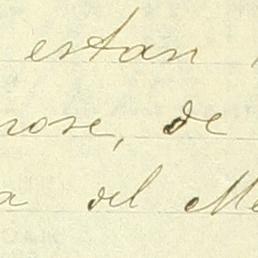 estan
nose, de
a del Me